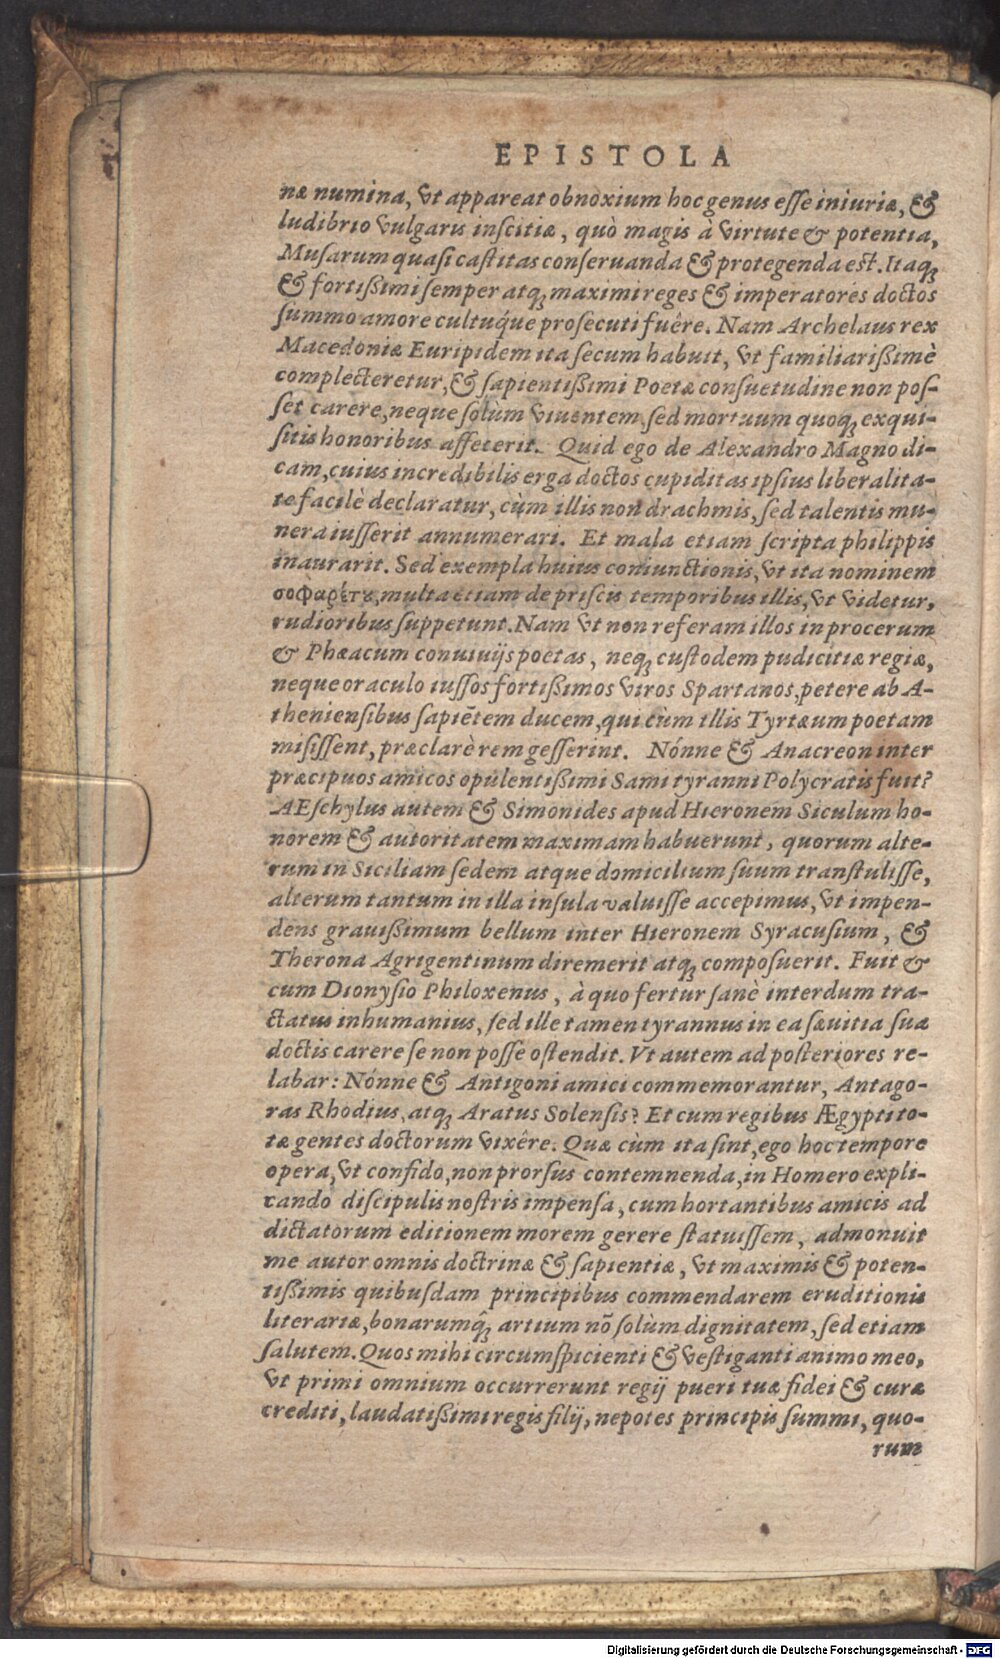 EPISTOLA
næ numina, vt appareat obnoxium hoc genus esse iniuriæ, &
ludibrio vulgaris inscitiæ, quò magis à virtute & potentia,
Musarum quasi castitas conseruanda & protegenda est. Itaq;
& fortißimi semper atq; maximi reges & imperatores doctos
summo amore cultuq́ue prosecuti fuêre. Nam Archelaus rex
Macedoniæ Euripidem ita secum habuit, vt familiarißimè
complecteretur, & sapientißimi Poetæ consuetudine non pos-
set carere, neque solùm viuentem, sed mortuum quoq; exqui-
sitis honoribus affecerit. Quid ego de Alexandro Magno di-
cam, cuius incredibilis erga doctos cupiditas ipsius liberalita-
te facilè declaratur, cùm illis non drachmis, sed talentis mu-
nera iusserit annumerari. Et mala etiam scripta philippis
inaurarit. Sed exempla huius coniunctionis, vt ita nominem
σοφαρέτου, multa etiam de priscis temporibus illis, vt videtur,
rudioribus suppetunt. Nam vt non referam illos in procerum
& Phæacum conuiuijs poetas, neq; custodem pudicitiæ regiæ,
neque oraculo iussos fortißimos viros Spartanos, petere ab A-
theniensibus sapiẽtem ducem, qui cùm illis Tyrtæum poetam
misissent, præclarè rem gesserint. Nónne & Anacreon inter
præcipuos amicos opulentißimi Sami tyranni Polycratis fuit?
AEschylus autem & Simonides apud Hieronem Siculum ho-
norem & autoritatem maximam habuerunt, quorum alte-
rum in Siciliam sedem atque domicilium suum transtulisse,
alterum tantum in illa insula valuisse accepimus, vt impen-
dens grauißimum bellum inter Hieronem Syracusium, &
Therona Agrigentinum diremerit atq; composuerit. Fuit &
cum Dionysio Philoxenus, à quo fertur sanè interdum tra-
ctatus inhumanius, sed ille tamen tyrannus in ea sæuitia suæ
doctis carere se non posse ostendit. Vt autem ad posteriores re-
labar: Nónne & Antigoni amici commemorantur, Antago-
ras Rhodius, atq; Aratus Solensis? Et cum regibus Ægypti to-
tæ gentes doctorum vixêre. Quæ cùm ita sint, ego hoc tempore
opera, vt confido, non prorsus contemnenda, in Homero expli-
cando discipulis nostris impensa, cum hortantibus amicis ad
dictatorum editionem morem gerere statuissem, admonuit
me autor omnis doctrinæ & sapientiæ, vt maximis & poten-
tißimis quibusdam principibus commendarem eruditionis
literariæ, bonarumq̂; artium nõ solùm dignitatem, sed etiam
salutem. Quos mihi circumspicienti & vestiganti animo meo,
vt primi omnium occurrerunt regij pueri tuæ fidei & curæ
crediti, laudatißimi regis filij, nepotes principis summi, quo-
rum
Digitalisierung gefördert durch die Deutsche Forschungsgemeinschaft - DFG